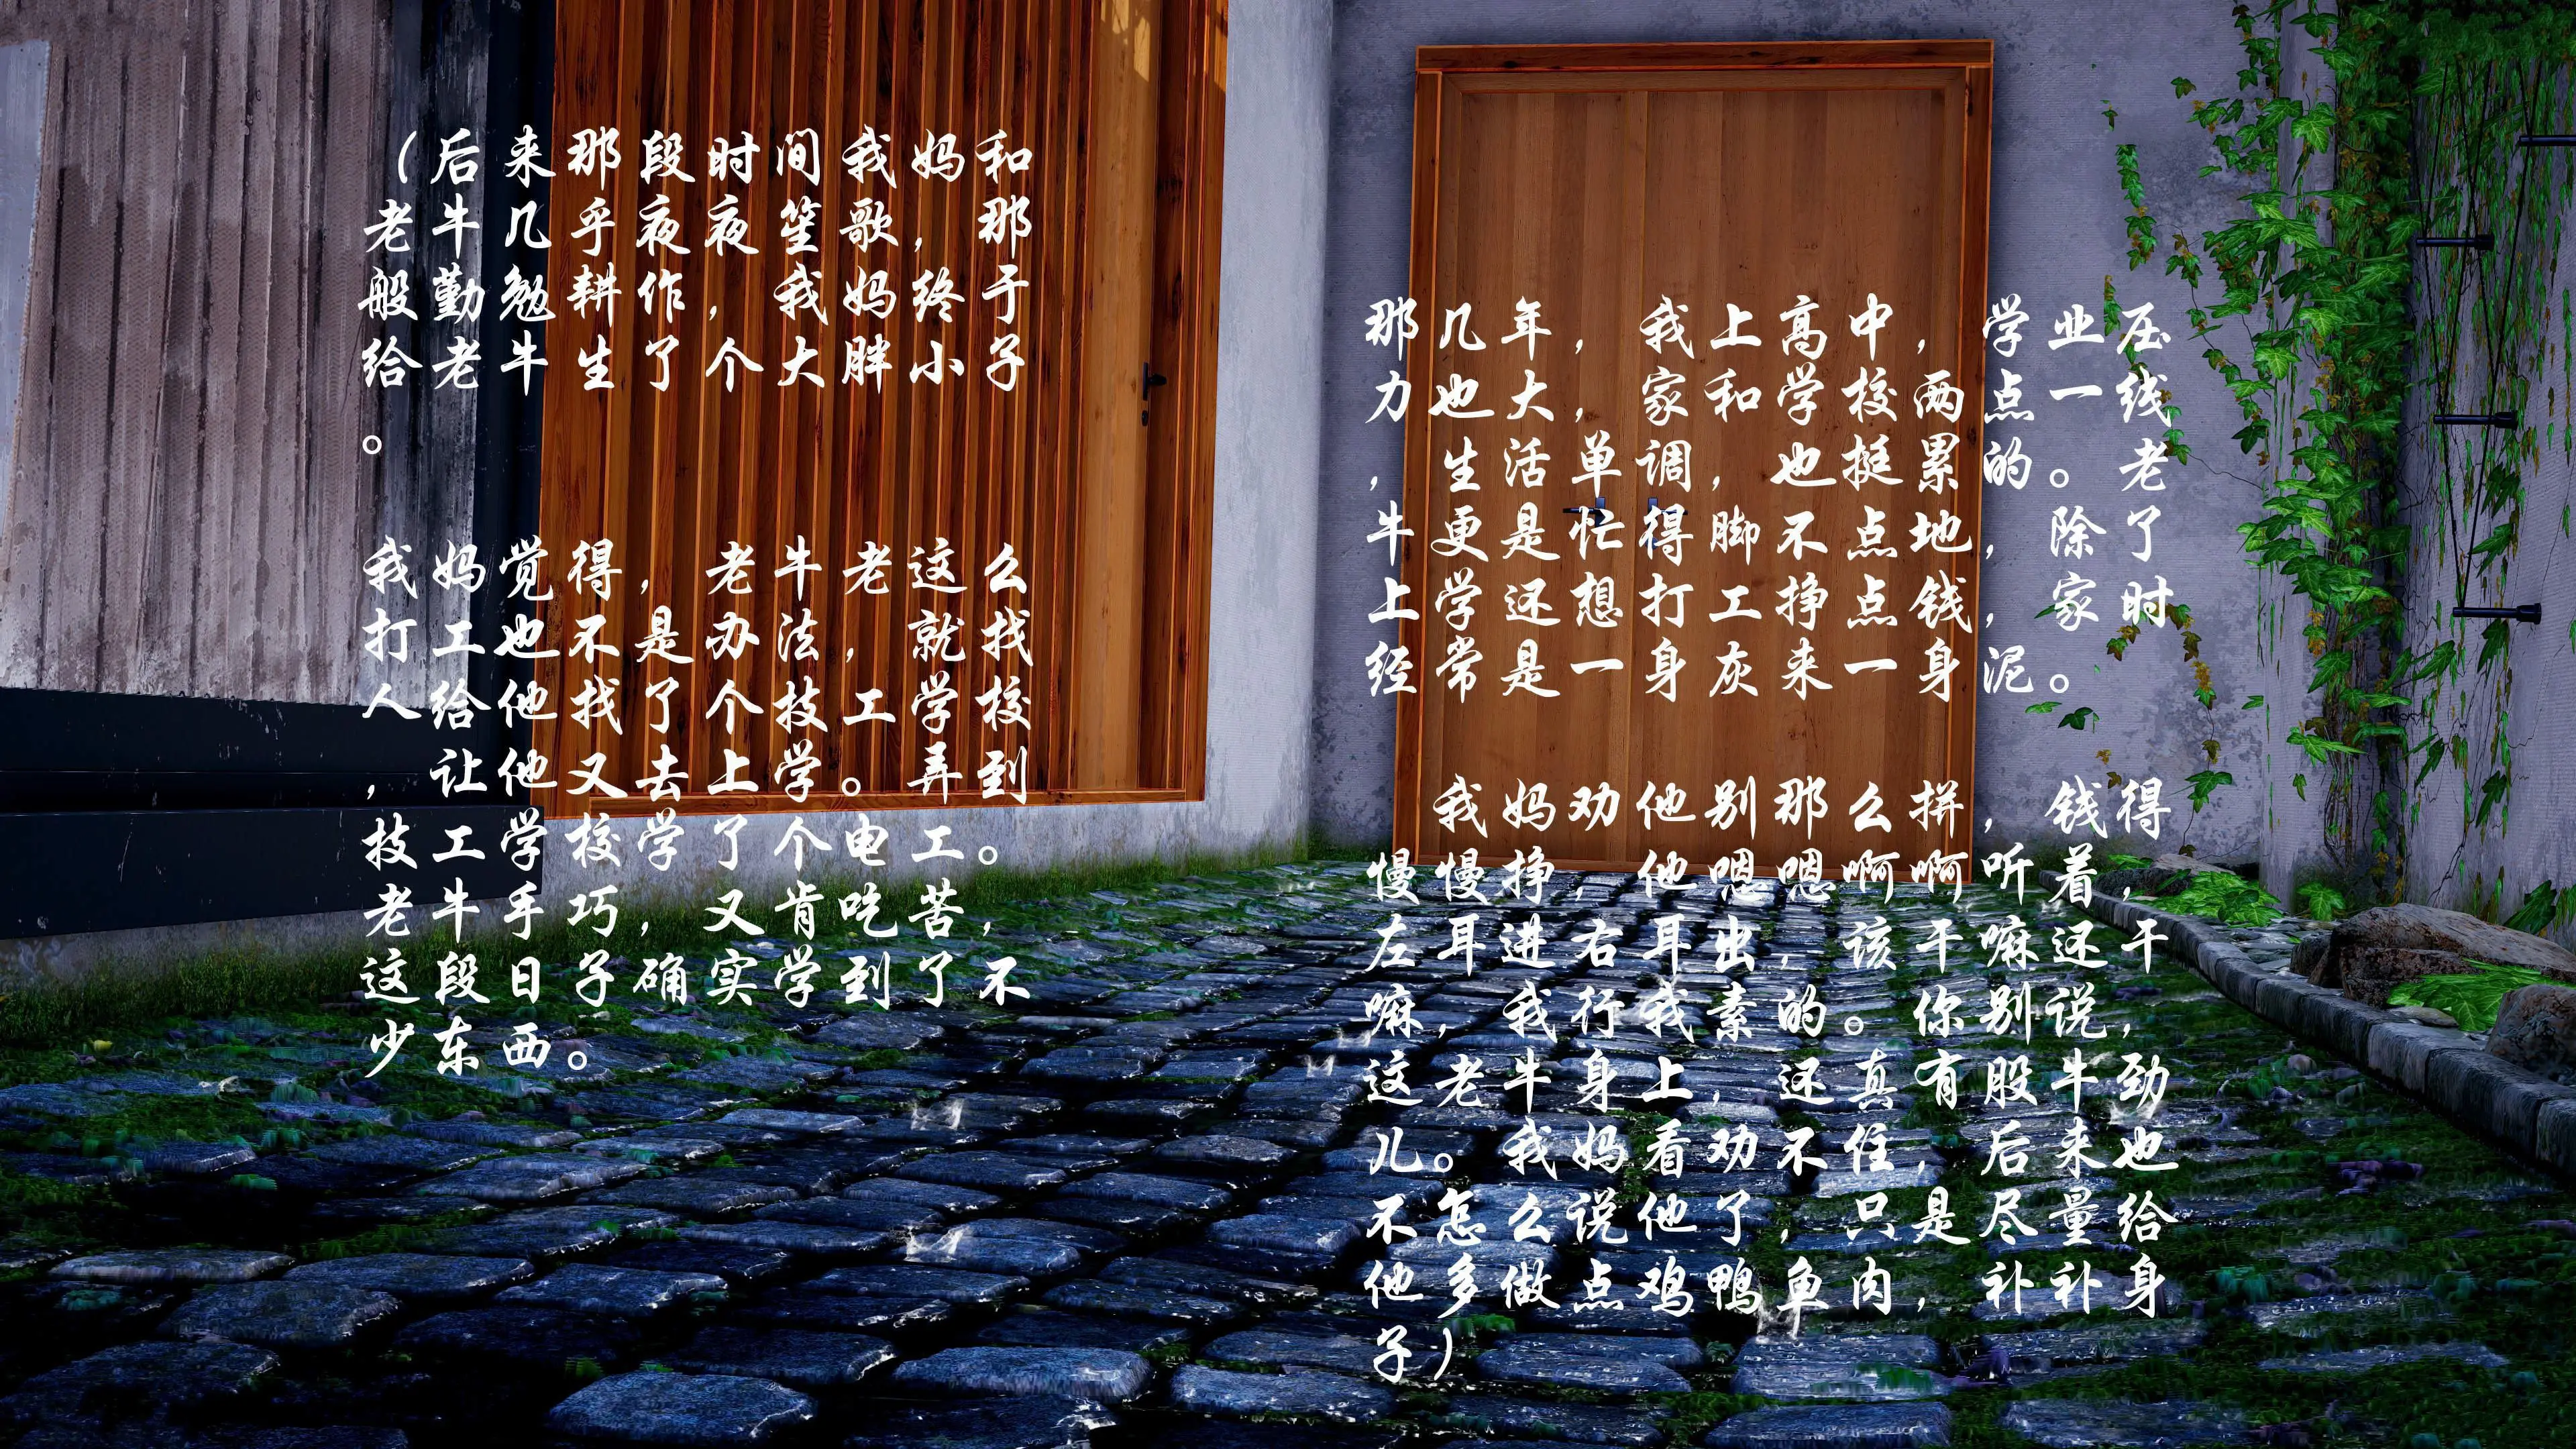 （后来那段时间我妈和
老牛几乎夜夜笙歌，那
般勤勉耕作，我妈终于
给老牛生了个大胖小子
。
我妈觉得，老牛老这么
打工也不是办法，就找
人给他找了个技工学校
，让他又去上学。弄到
技工学校学了个电工。
老牛手巧，又肯吃苦，
这段日子确实学到了不
少东西。
那几年，我上高中，学业压
力也大，家和学校两点一线
，生活单调，也挺累的。老
牛更是忙得脚不点地，除了
上学还想打工挣点钱，家时
经常是一身灰来一身泥。
我妈劝他别那么拼，钱得
慢慢挣，他嗯嗯啊啊听着，
左耳进右耳出，该干嘛还干
嘛，我行我素的。你别说，
这老牛身上，还真有股牛劲
儿。我妈看劝不住，后来也
不怎么说他了，只是尽量给
他多做点鸡鸭鱼肉，补补身
子）